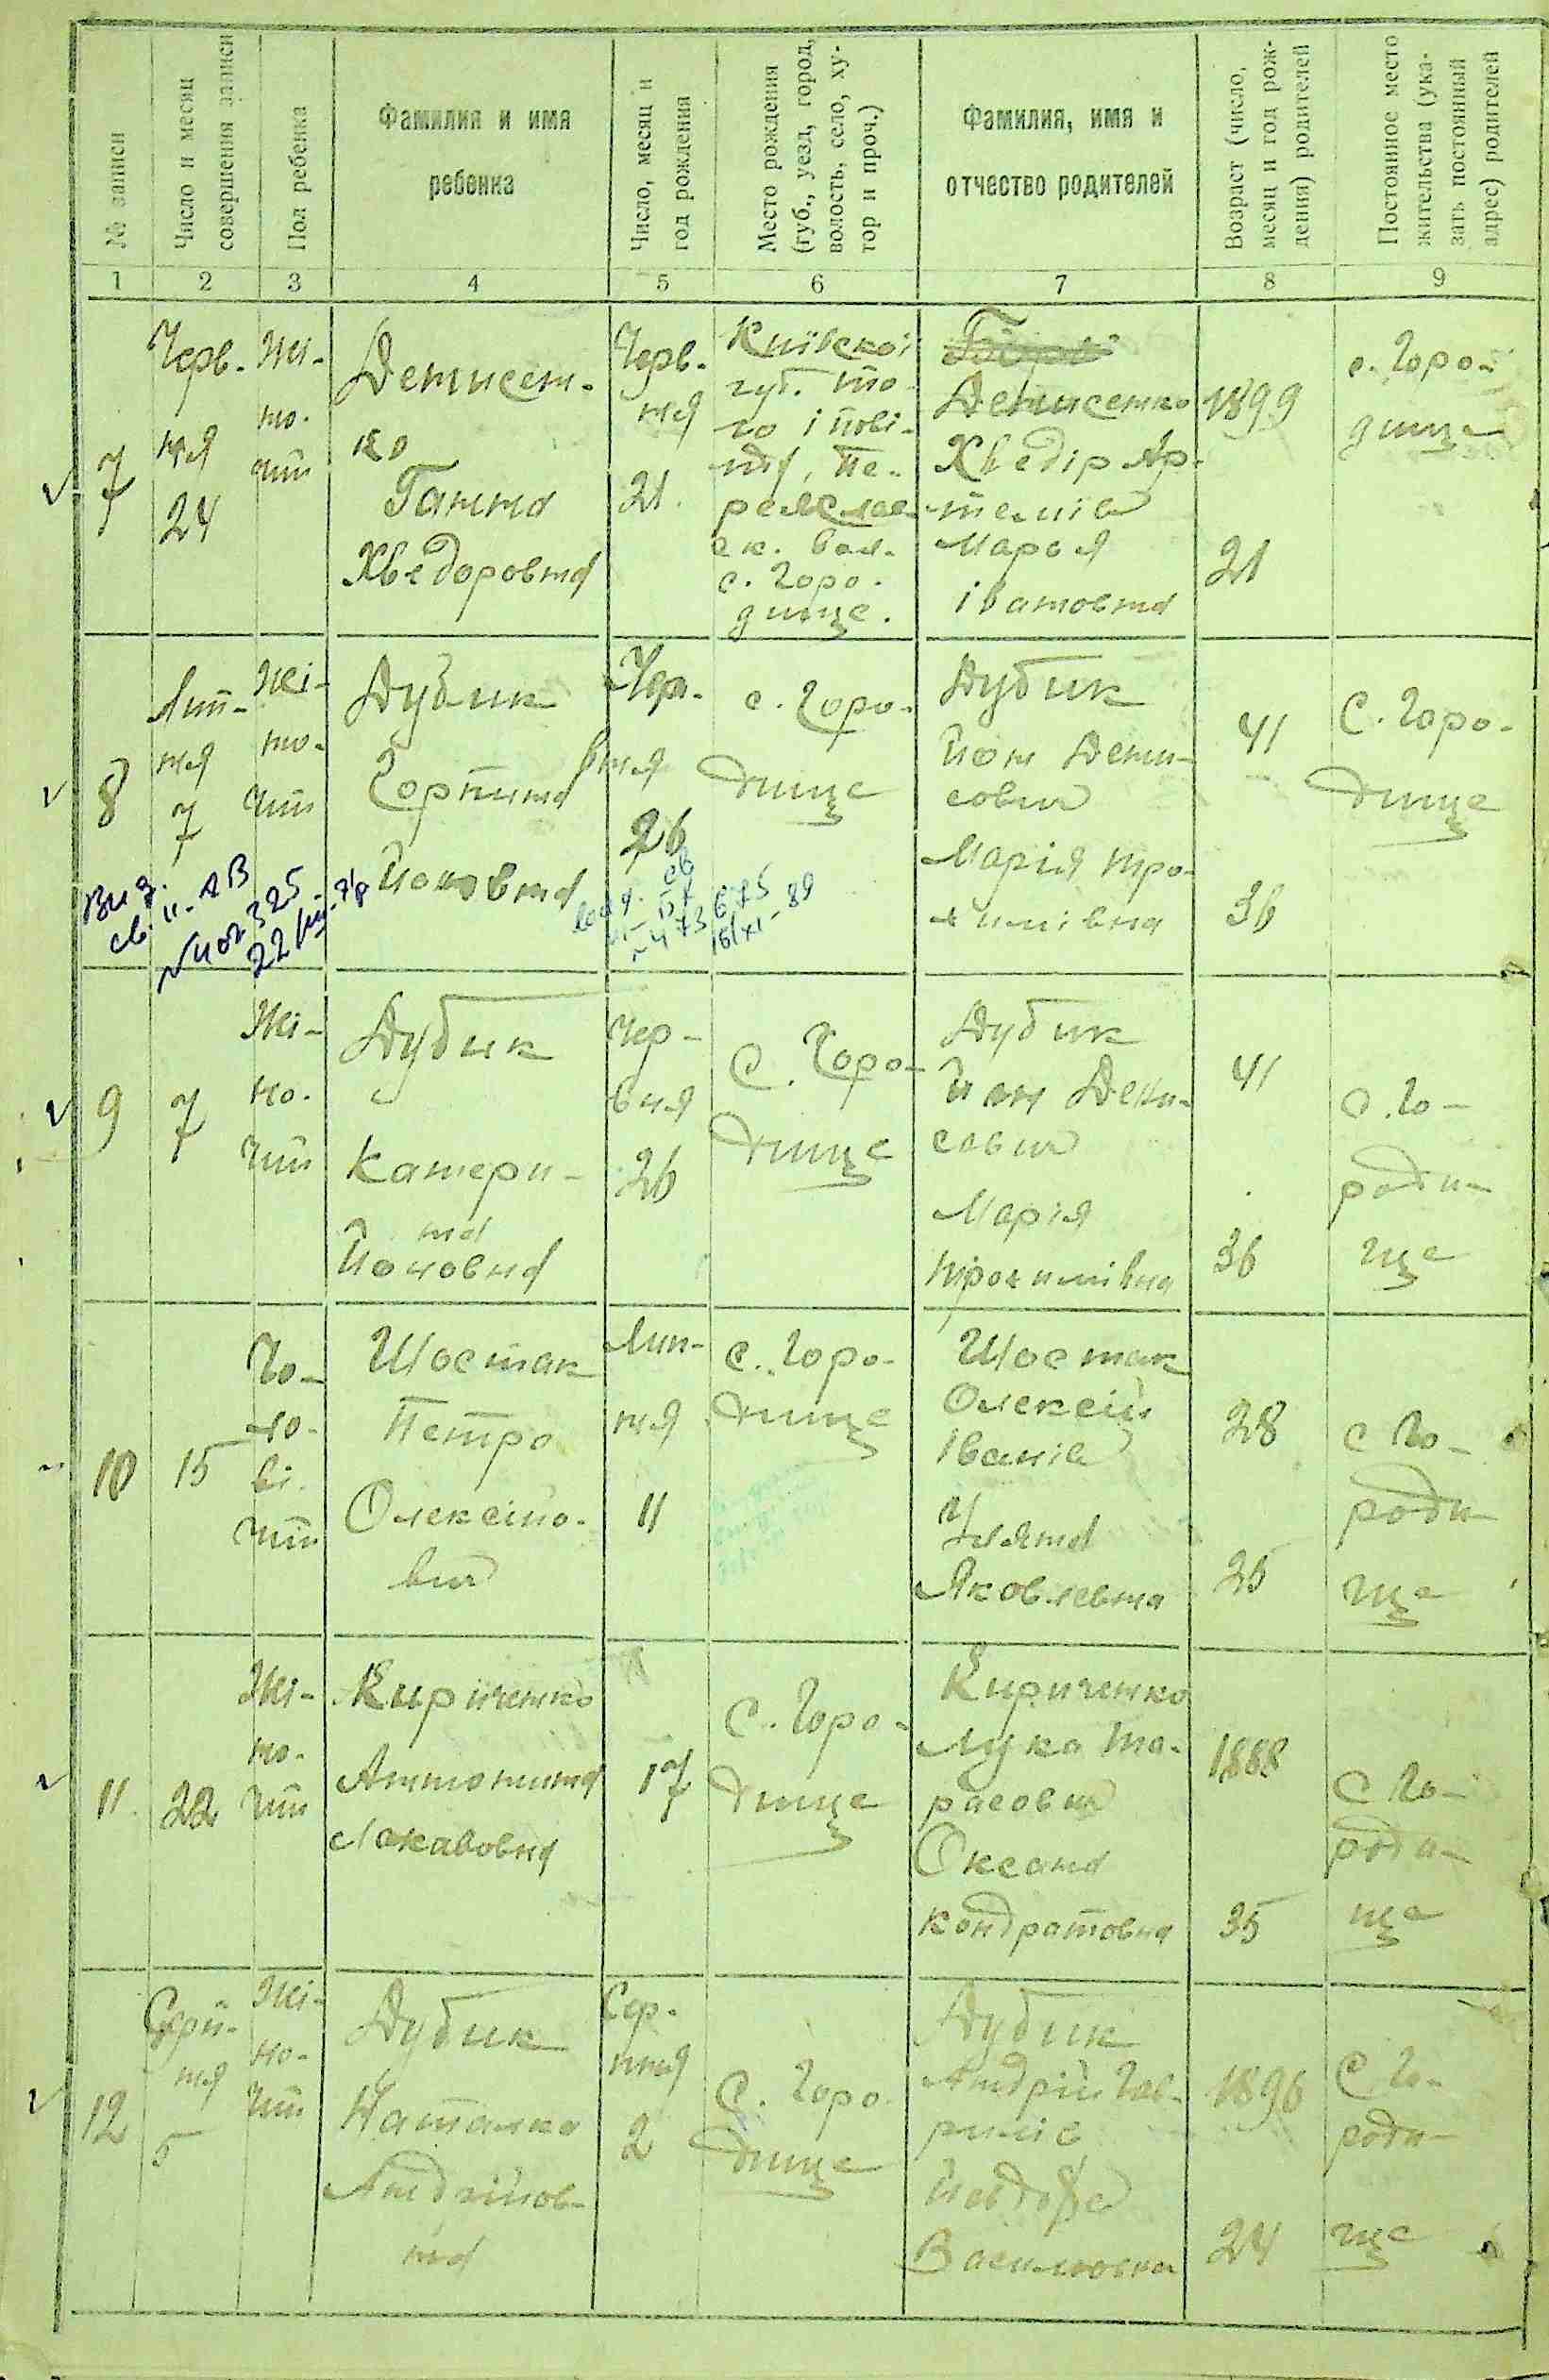 № записи
Число и месяц
совершения записи
Пол ребенка
Фамилия и имя
ребенка
Число, месяц и
год рождения
Место рождения
(губ., уезд, город,
волость, село, ху-
тор и проч.)
Фамилия, имя и
отчество родителей
Возраст (число,
месяц и год рож-
дения) родителей
Постоянное место
жительства (ука-
зать постоянный
адрес) родителей
1 2 3 4 5 6 7 8 9
7
Черв-
ня
24
Жі-
но-
чий
Денисен-
ко
Ганна
Хведоровна
Черв-
ня
21.
Київскоі
губ. то-
го і пові-
ту, Пе-
реяслав-
ск. вол.
с. Горо-
дище.
Денисенко
Хведір Ар-
темів
Марья
івановна
1899
21
с. Горо-
дище
8
Лип-
ня
7
Жі-
но-
чий
Дубик
Горпина
Йоновна
Чер-
вня
26
с. Горо-
дище
Дубик
Йон Дени-
сович
Марія Тро-
химівна
41
36
С. Горо-
дище
Вид.
св. II-АВ
№402325
473675
16/XI-89
9
7
Жі-
но-
чий
Дубик
Катери-
на
Йоновна
Чер-
вня
26
С. Горо-
дище
Дубик
Йон Дени-
сович
Марія
Трохимівна
41
36
с. Го-
роди-
ще
10
15
Чо-
ло-
ві-
чий
Шостак
Петро
Олексійо-
вич
Лип-
ня
11
с. Горо-
дище
Шостак
Олексій
Іванів
Уляна
Яковлевна
28
25
с Го-
роди-
ще
11.
22
Жі-
но-
чий
Кириченко
Антонина
Лукавовна
17
С. Горо-
дище
Кириченко
Лука Та-
расович
Оксана
Кондратовна
1888
35
С Го-
роди-
ще
12
Серп-
ня
5
Жі-
но-
чий
Дубик
Наталка
Андрійов-
на
Сер-
пня
2
С. Горо-
дище
Дубик
Андрій Гав-
рилів
Йовдоха
Василювна
1896
24
С Го-
роди-
ще